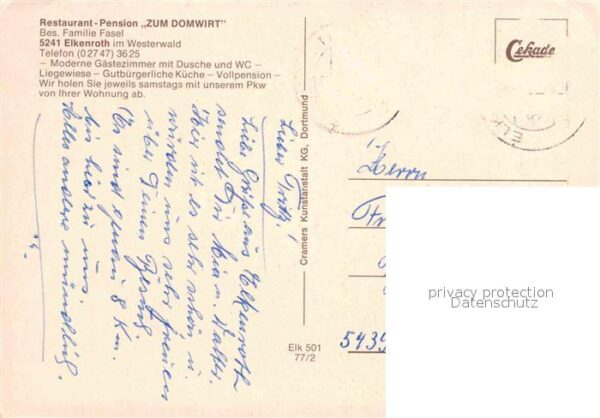 Restaurant-Pension „ZUM DOMWIRT"
Bes. Familie Fasel
5241 Elkenroth im Westerwald
Telefon (02747) 3625
– Moderne Gästezimmer mit Dusche und WC –
Liegewiese – Gutbürgerliche Küche – Vollpension –
Wir holen Sie jeweils samstags mit unserem Pkw
von Ihrer Wohnung ab.
Cekade
Lieber Fritz!
Liebe Grüße aus Elkenroth
sendet Dir Mia u. Walter.
Hier ist es sehr schön u.
würden uns sehr freuen
über Deinen Besuch
Es sind genau 8 Km.
bis hier zu uns.
Alles andere mündlich.
Cramers Kunstanstalt KG, Dortmund
Elk 501
77/2
ELK
Herrn
Fr
5439
privacy protection
Datenschutz